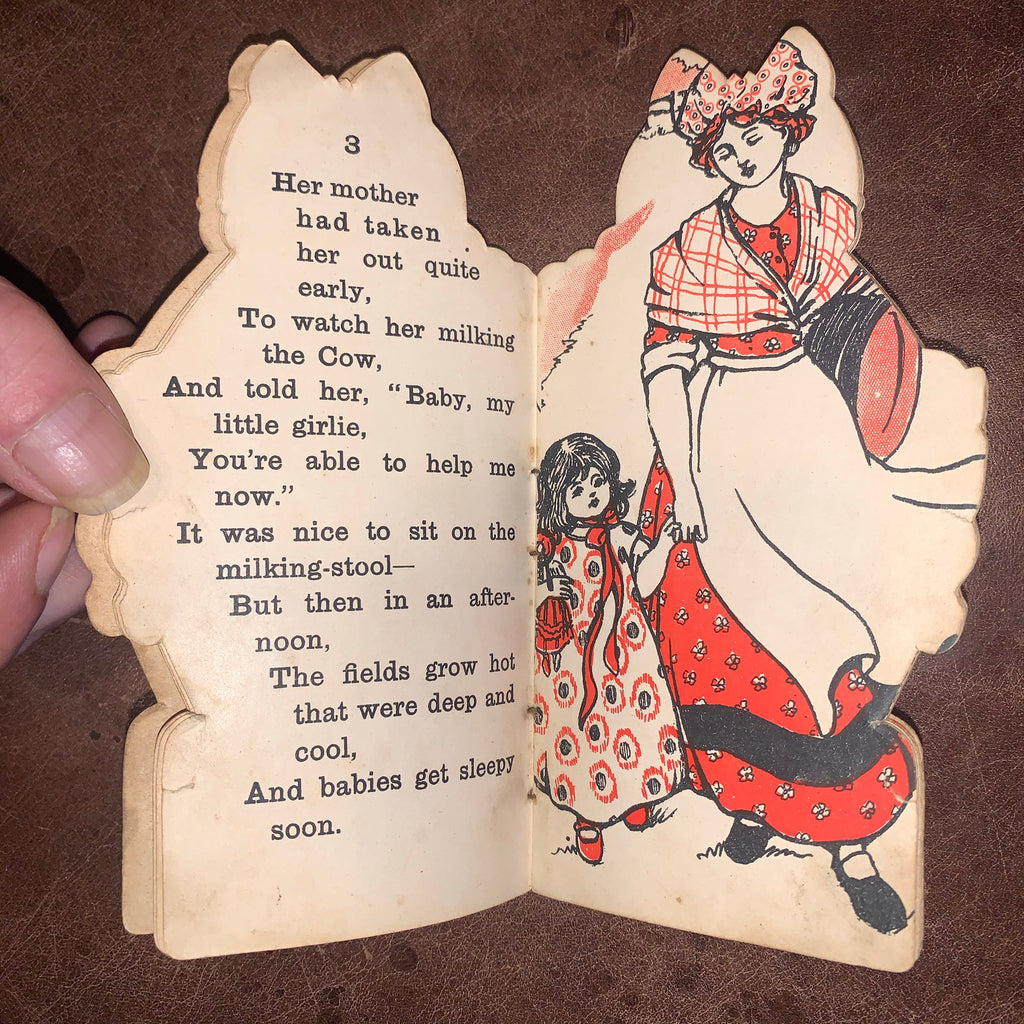 3
Her mother
had taken
her out quite
early,
To watch her milking
the Cow,
And told her, “Baby, my
little girlie,
You're able to help me
now.”
It was nice to sit on the
milking-stool—
But then in an after-
noon,
The fields grow hot
that were deep and
cool,
And babies get sleepy
soon.